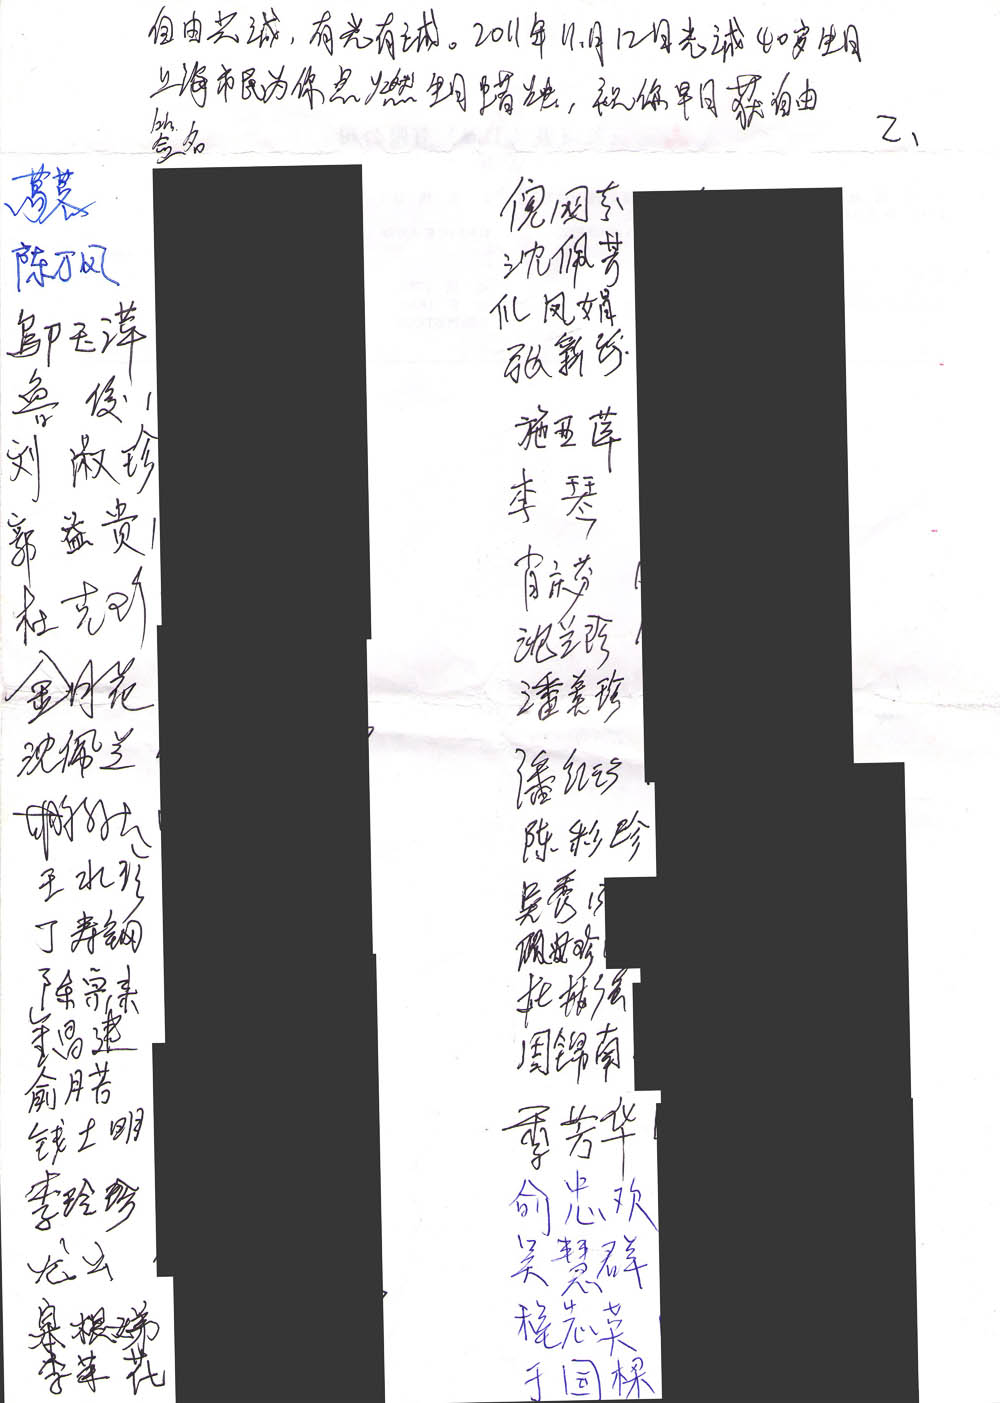 自由光诚，有光有诚。2011年11月12日光诚40岁生日
上海市民为你点燃生日蜡烛，祝你早日获自由
签名
2、
陈万凤
邬玉萍
鲁俊
刘淑珍
郭益贵
杜克珍
金月花
沈佩兰
王水珍
丁寿钢
陈宗来
崔昌建
俞月若
钱士明
李玲珍
龙云
李莱花
倪国泰
沈佩芳
仇凤娟
张新珍
施亚萍
李琴
肖庆芬
沈兰珍
潘美珍
潘红珍
陈彩珍
吴秀
顾妹珍
杜林强
周锦南
季芳华
俞忠欢
吴慧群
程志英
于国樑